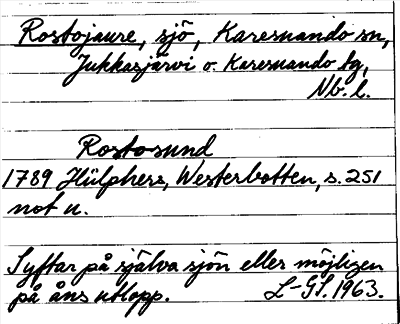 Rostojaure, sjö, Karesuando sn,
Jukkasjärvi o. Karesuando tg,
Nb. l.
Rostosund
1789 Hülphers, Westerbotten, s. 251
not u.
Syftar på själva sjön eller möjligen
på åns utlopp. L-GS. 1963.